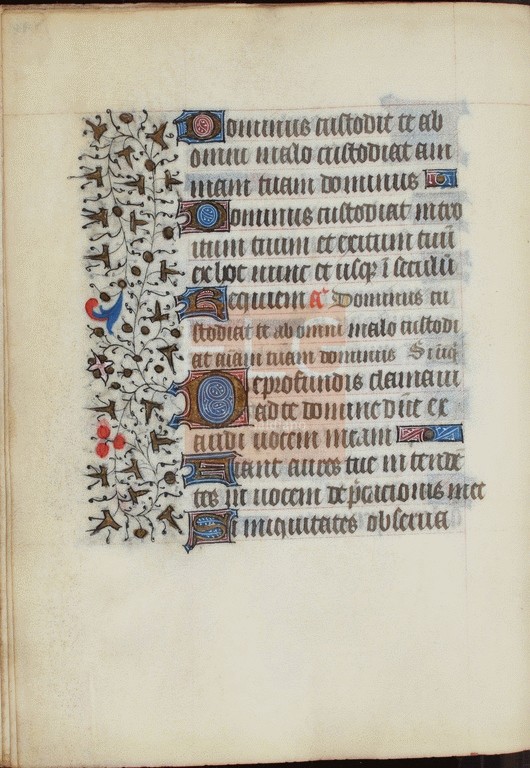 Dominus custodit te ab
omni malo custodiat ani
mam tuam dominus
Dominus custodiat intro
itum tuum et exitum tuū
ex hoc nunc et usqꝫ ī seculū
Requiem a Dominus cu
stodiat te ab omni malo custodi
at aīam tuam dominus Si iniq̄
De profundis clamaui
ad te domine dn̄e ex
audi uocem meam
Fiant aures tue intendē
tes in uocem dep̄cacionis mee
Si iniquitates obserua